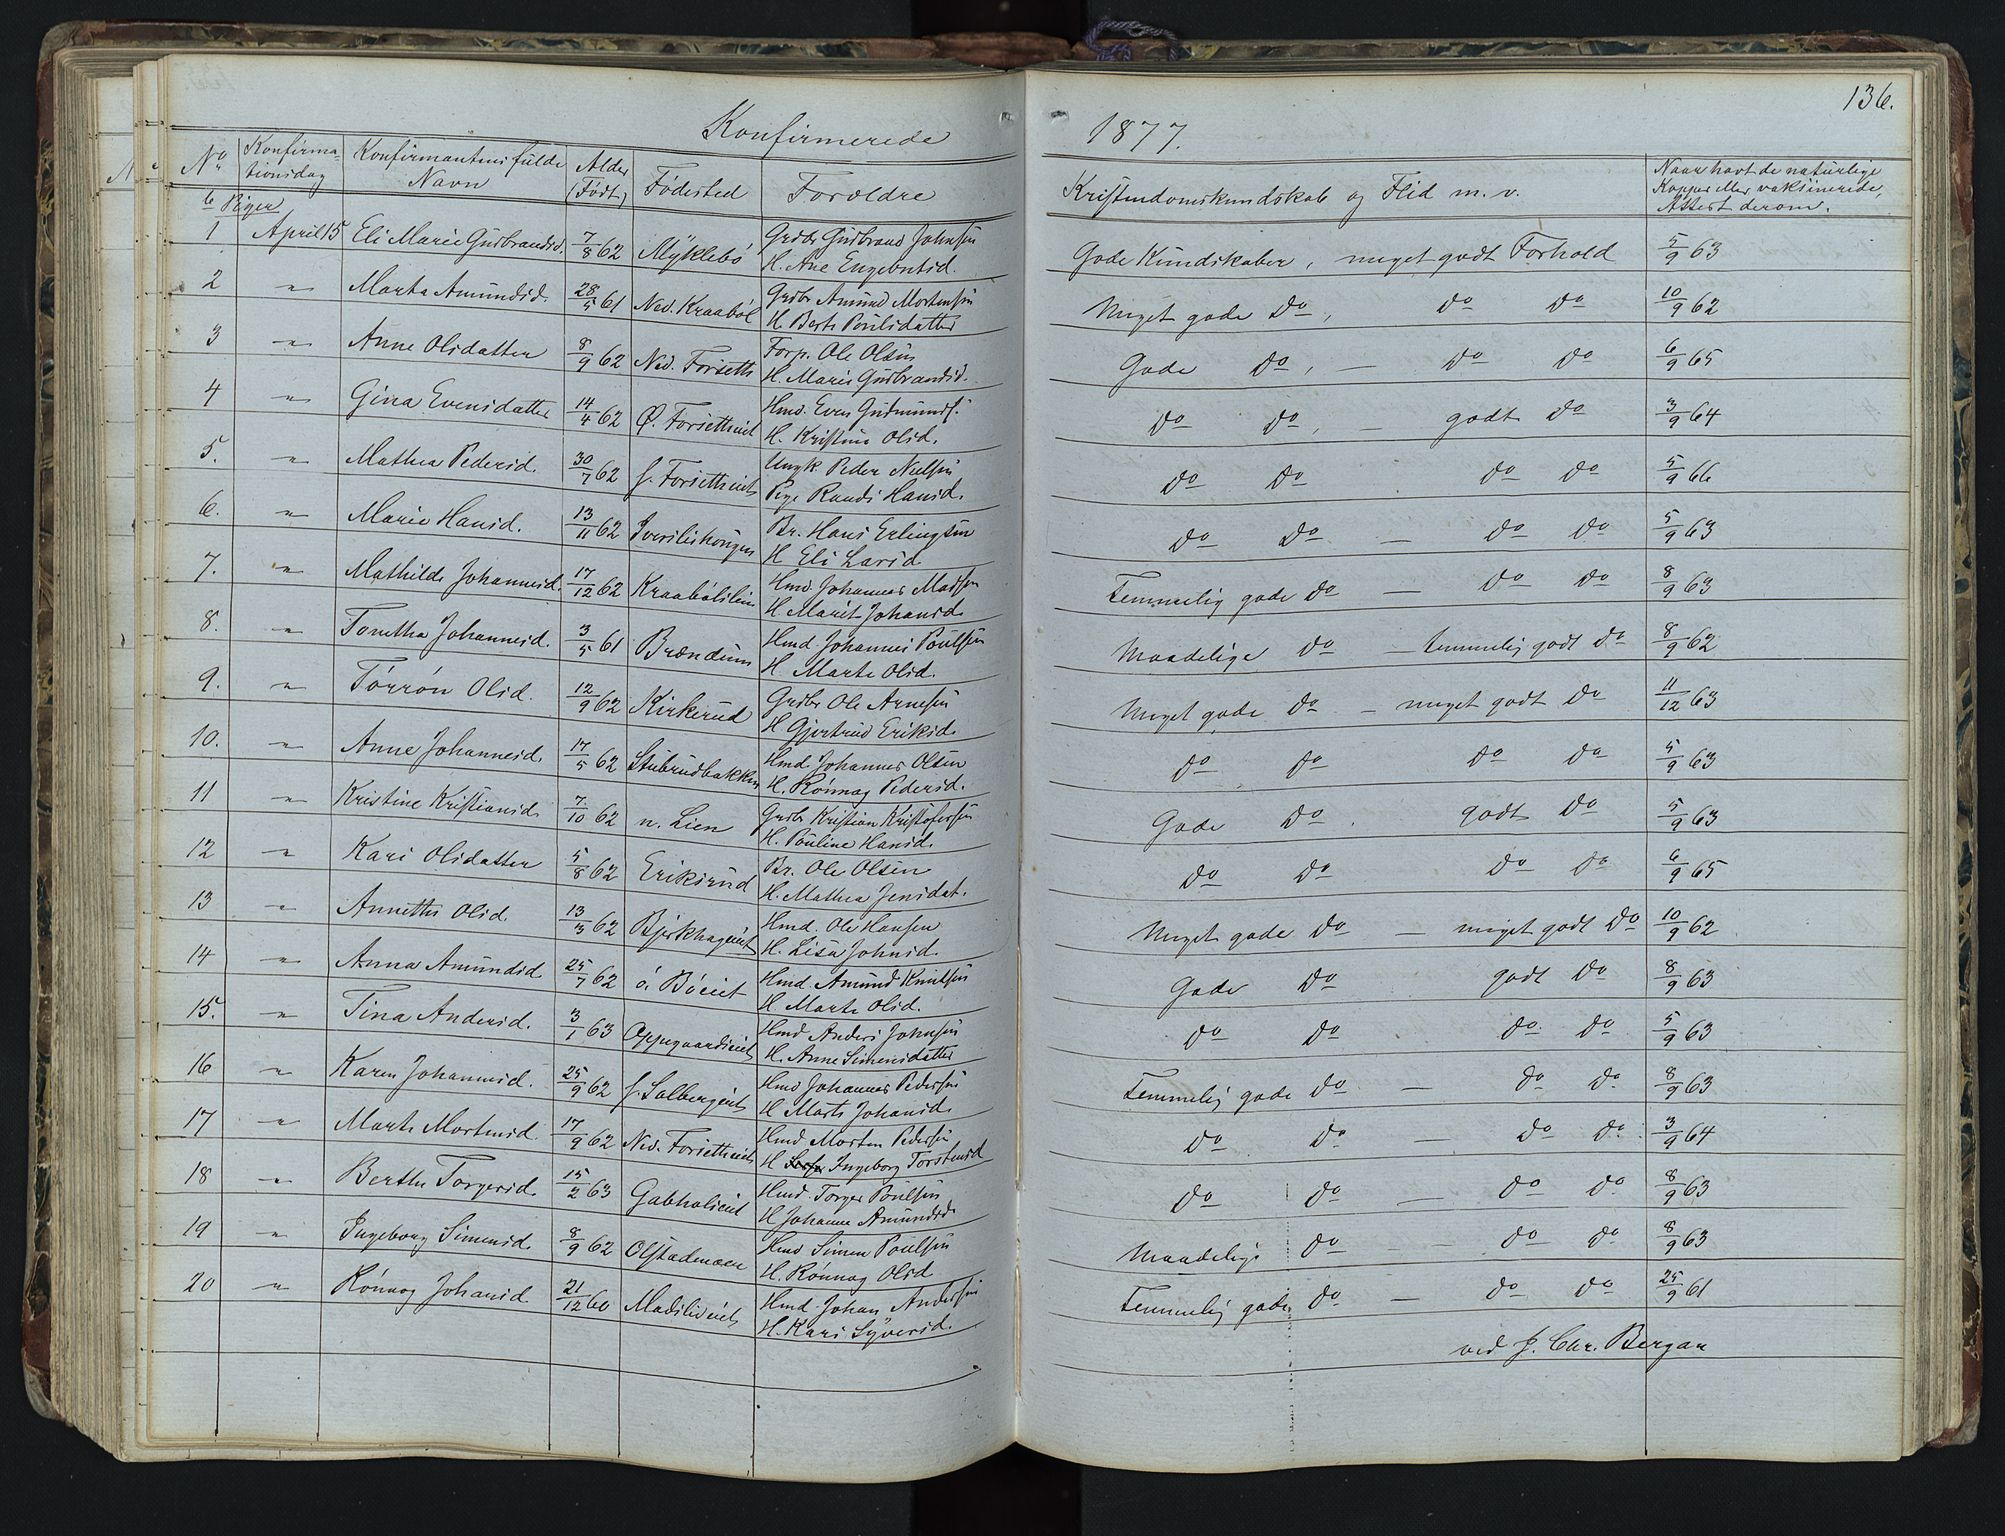 136.
Konfirmerede 1877.
No Konfirmationsdag Konfirmantens fulde Navn Alder (Født) Fødested Forældre Kristendomskundskab og Flid m. v. Naar havt de naturlige Kopper eller vaksinerede, Attest derom.
6 Piger
1 April 15 Eli Marie Gudbrandsd. 7/8 62 Myklebö Grdbr Gudbrand Johnsen Gode Kundskaber, meget godt Forhold 5/9 63
H. Ane Engebretsd.
2 " Marte Amundsd. 28/5 61 Ned. Kraaböl Grdbr Amund Mortensen Meget gode Do, Do Do 10/9 62
H Berte Poulsdatter
3 " Anne Olsdatter 8/9 62 Ned. Forseth Forp. Ole Olsen Gode Do, — Do Do 6/9 65
H. Marie Gudbrandsd.
4 " Gina Evensdatter 14/4 62 Ø. Forsetheiet Hmd. Even Gudmunds. Do Do, — godt Do 3/9 64
H. Kristine Olsd.
5. " Mathea Pedersd. 30/7 62 s. Forsetheiet Ungk. Peder Nielsen Do Do Do Do 5/9 66
Pige Randi Hansd.
6. " Marie Hansd. 13/11 62 Br. Hans Erlingsen Do Do — Do Do 5/9 63
H Eli Larsd
7. " Mathilde Johannesd. 17/12 62 Kraabölslien Hmd. Johannes Madsen Temmelig gode Do — Do Do 8/9 63
H Marit Johansd.
8. " Tonetha Johannesd. 3/5 61 Brændum Hmd Johannes Poulsen Maadelige Do — temmelig godt Do 8/9 62
H. Marte Olsd.
9. " Torrön Olsd. 12/9 62 Kirkerud Grdbr Ole Arnesen Meget gode Do — meget godt Do 11/12 63
H Gjertrud Eriksd.
10. " Anne Johannesd. 17/5 62 Stubrudbakken Hmd Johannes Olsen Do Do Do Do 5/9 63
H. Rønnog Pedersd.
11 " Kristine Kristiansd. 7/10 62 n. Lien Grdbr Kristian Kristofersen Gode Do. godt Do 5/9 63
H. Pouline Hansd.
12 " Kari Olsdatter 5/8 62 Eriksrud Br. Ole Olsen Do Do Do Do 6/9 65
H. Mathea Jensdat.
13 " Annethe Olsd. 13/3 62 Bjerkhageiet Hmd. Ole Hansen Meget gode Do — meget godt Do 10/9 62
H. Lisa Johnsd.
14 " Anna Amundsd 25/7 62 ö. Böeiet Hmd. Amund Knutsen Gode Do godt Do 8/9 63
H. Marte Olsd.
15. " Tina Andersd. 3/1 63 Oppegaardseiet Hmd Anders Johnsen Do Do Do Do 5/9 63
H. Anne Simensdatter
16 " Karen Johannesd. 25/9 62 s. Salbergeiet Hmd Johannes Pedersen Temmelig gode Do — Do Do 8/9 63
H Marte Johansd.
17 " Marte Mortensd. 17/9 62 Ned. Forsetheiet Hmd Morten Pedersen Do Do — Do Do. 3/9 64
H Ingeborg Torstensd
18 " Berthe Torgersd. 15/2 63 Gabholseiet Hmd. Torger Poulsen Do Do — Do Do 8/9 63
H Johanne Amundsd.
19 " Ingeborg Simensd. 8/9 62 Olstadmoen Hmd Simen Poulsen Maadelige Do — Do Do 8/9 63
H. Rönnog Olsd
20 " Rönnog Johansd 21/12 60 Madslieneiet Hmd. Johan Andersen Temmelig gode Do — Do Do 25/9 61
H. Kari Syversd.
ved J. Chr. Bergan